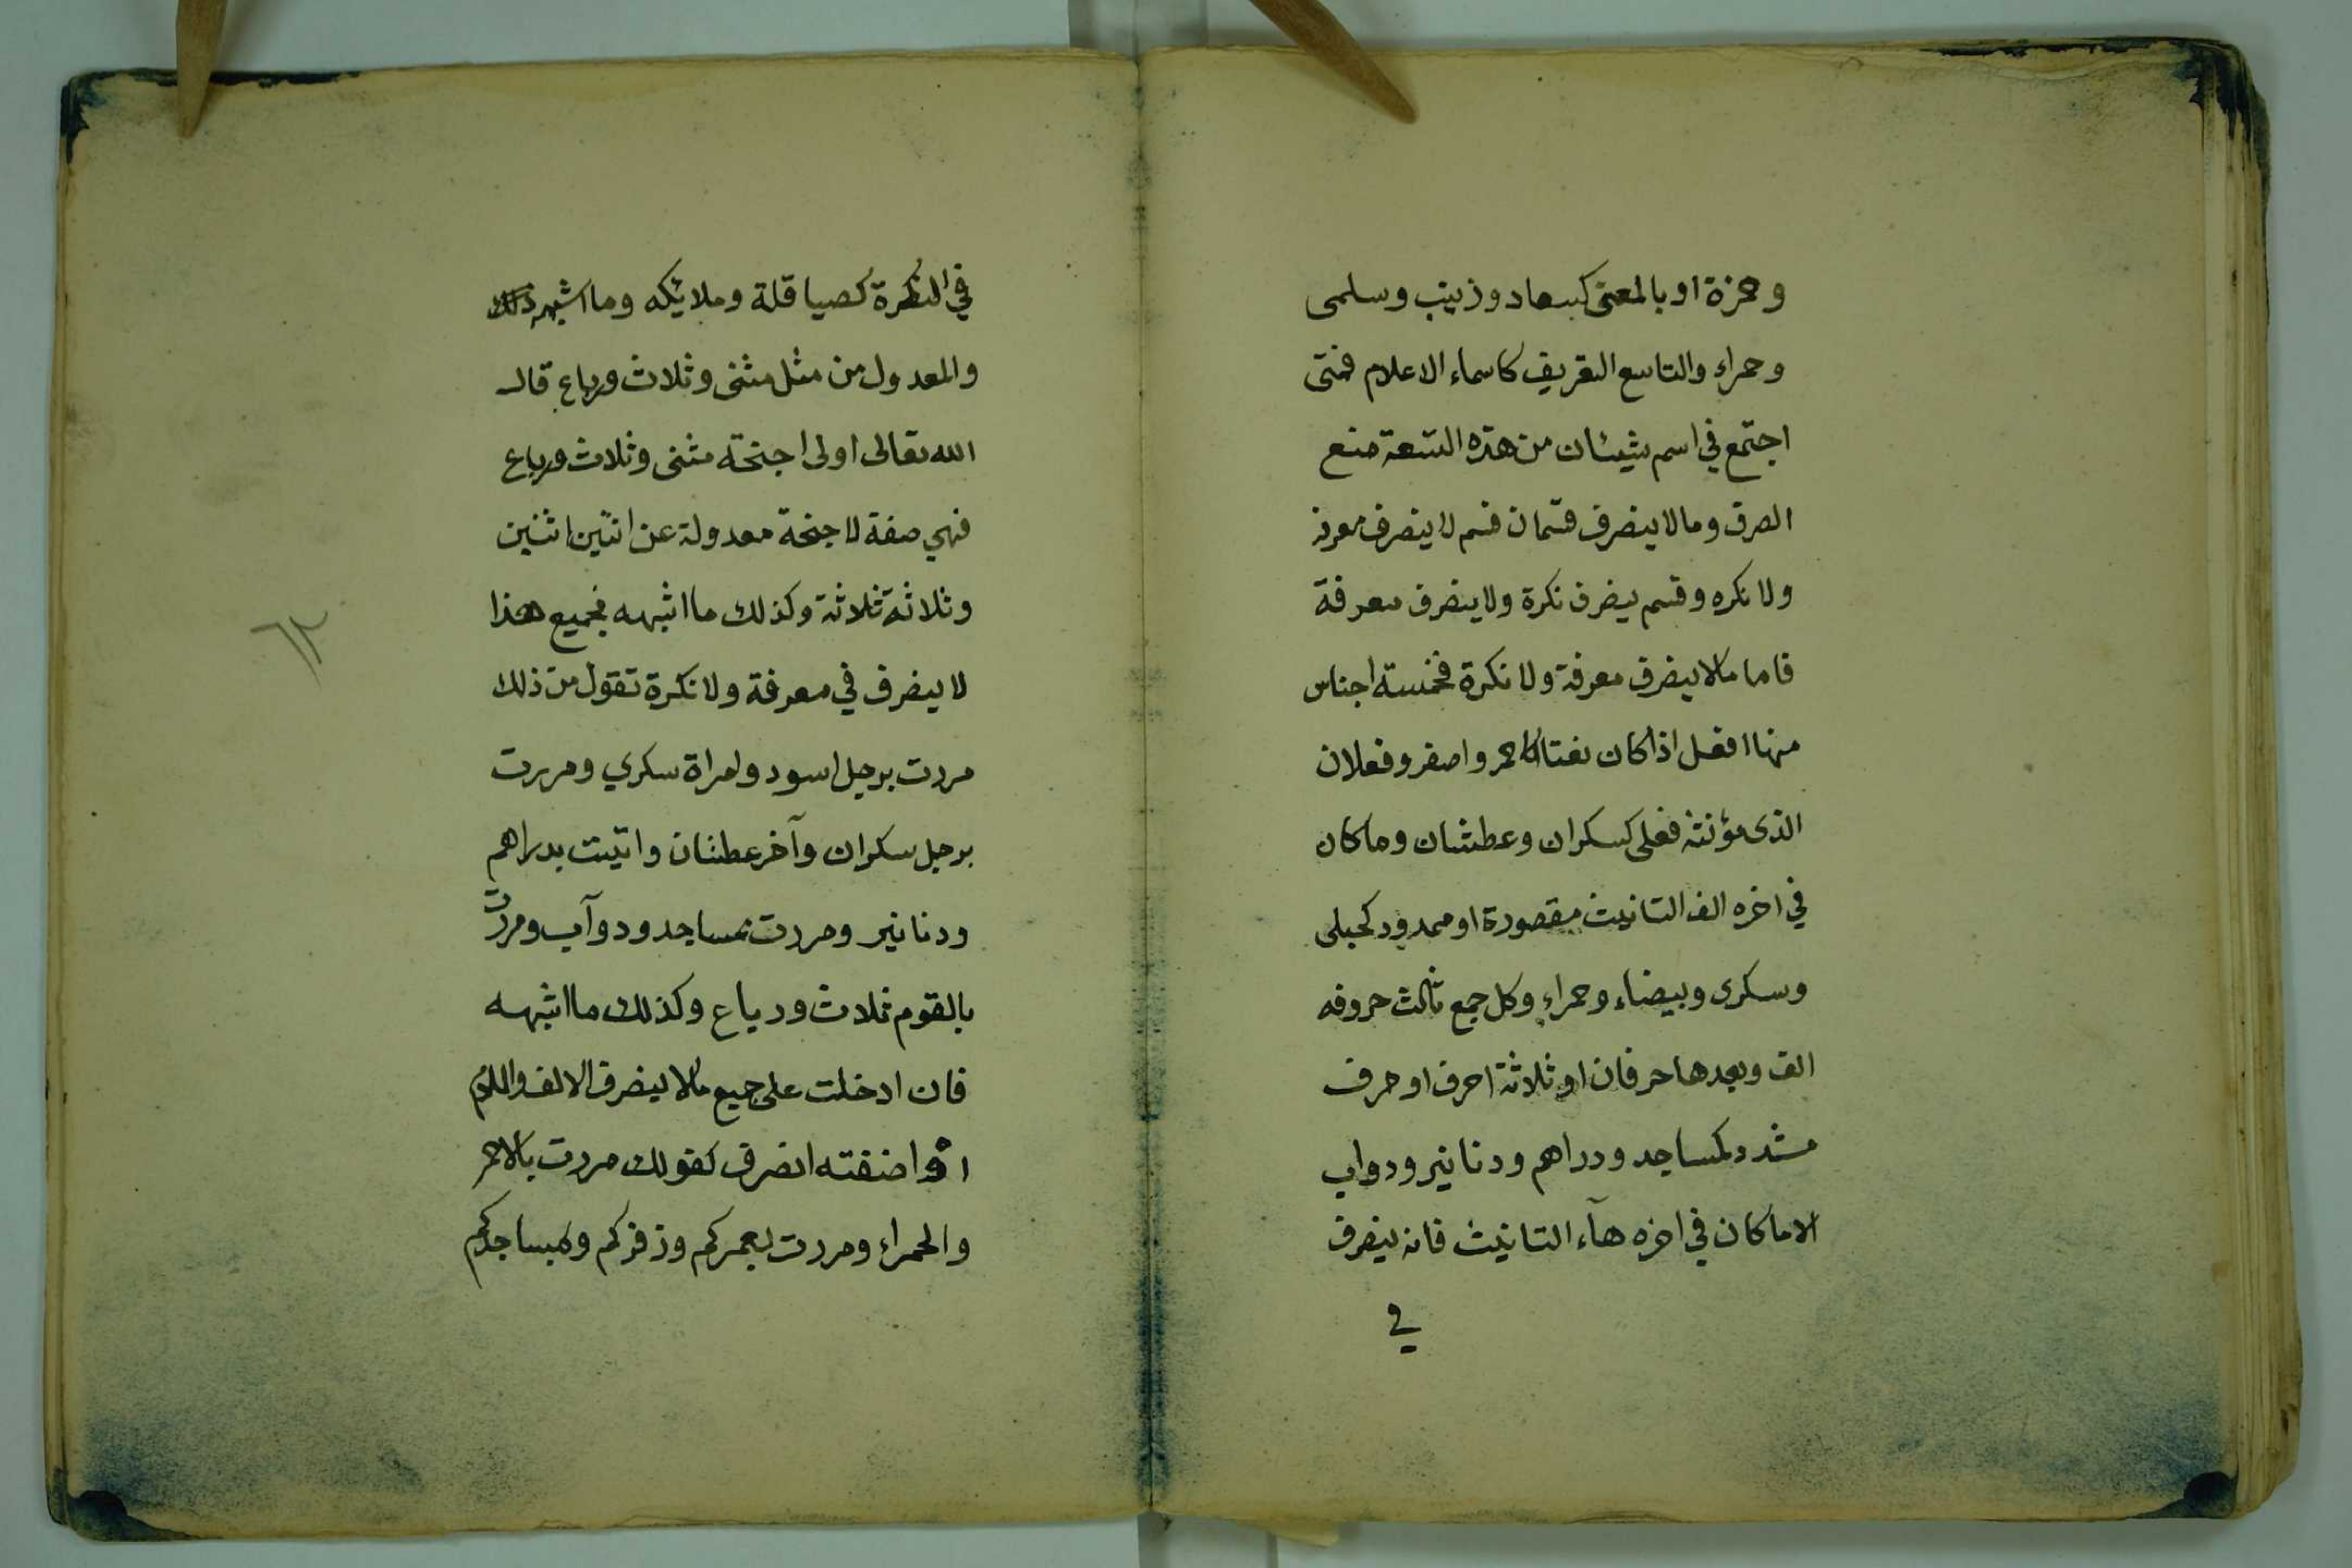 وحمزة او بالمعنى كسعاد وزينب وسلمى
وحمراء والتاسع التعريف كاسماء الاعلام فمتى
اجتمع في اسم شيئان من هذه التسعة منع
الصرف وما لا ينصرف قسمان قسم لا ينصرف معرفة
ولا نكره وقسم ينصرف نكرة ولا ينصرف معرفة
فاما ما لا ينصرف معرفة ولا نكرة فخمسة اجناس
منها افعل اذا كان نعتا كاحمر واصفر وفعلان
الذى مؤنثه فعلى كسكران وعطشان وما كان
في اخره الف التانيث مقصورة او ممدود كحبلى
وسكرى وبيضاء وحمراء وكل جمع ثالث حروفه
الف وبعدها حرفان او ثلاثة احرف او حرف
مشدد كمساجد ودراهم ودنانير ودواب
الا ما كان في اخره هآء التانيث فانه ينصرف
في
في النكرة كصياقلة وملايكه وما اشبه ذلك
والمعدول من مثل مثنى وثلاث ورباع قال
الله تعالى اولى اجنحة مثنى وثلاث ورباع
فهي صفة لاجنحة معدولة عن اثنين اثنين
وثلاثة ثلاثة وكذلك ما اشبهه فجميع هذا
لا ينصرف في معرفة ولا نكرة تقول من ذلك
مررت برجل اسود وامراة سكري ومررت
برجل سكران وآخر عطشان واتيت بدراهم
ودنانير ومررت بمساجد ودوآب ومررت
بالقوم ثلاث ورباع وكذلك ما اشبهه
فان ادخلت على جميع ما لا ينصرف الالف واللام
او اضفته انصرف كقولك مررت بالاحمر
والحمراء ومررت بعمركم وزفركم وبمساجدكم
٦٢